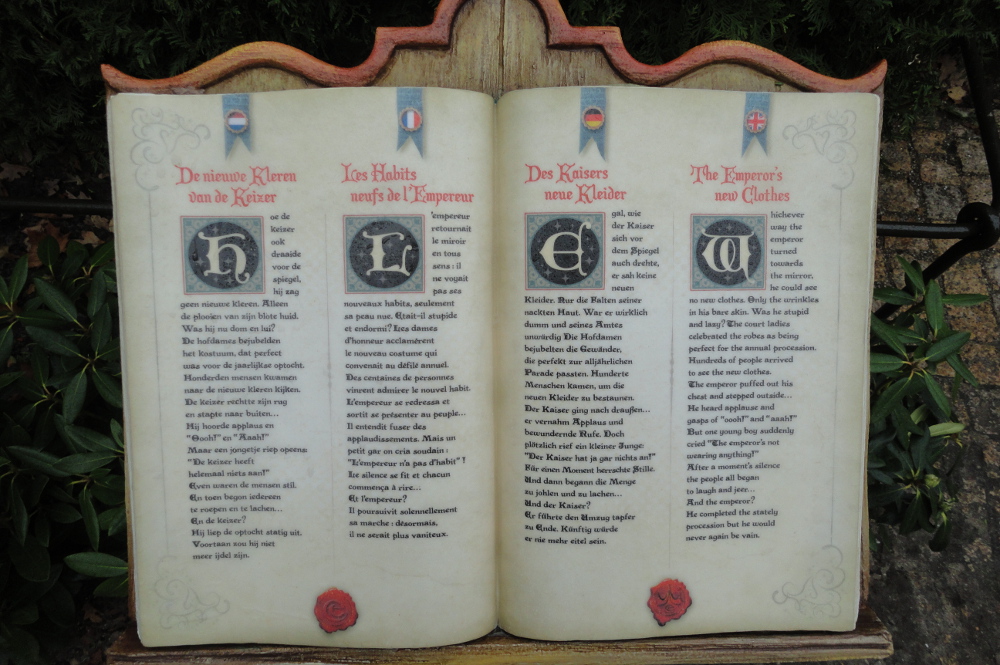 De nieuwe Kleren
van de Keizer
Hoe de
keizer
ook
draaide
voor de
spiegel,
hij zag
geen nieuwe kleren. Alleen
de plooien van zijn blote huid.
Was hij nu dom en lui?
De hofdames bejubelden
het kostuum, dat perfect
was voor de jaarlijkse optocht.
Honderden mensen kwamen
naar de nieuwe kleren kijken.
De keizer rechtte zijn rug
en stapte naar buiten...
Hij hoorde applaus en
"Oooh!" en "Aaah!"
Maar een jongetje riep opeens:
"De keizer heeft
helemaal niets aan!"
Even waren de mensen stil.
En toen begon iedereen
te roepen en te lachen...
En de keizer?
Hij liep de optocht statig uit.
Voortaan zou hij niet
meer ijdel zijn.
Les Habits
neufs de l'Empereur
L'empereur
retournait
le miroir
en tous
sens : il
ne voyait
pas ses
nouveaux habits, seulement
sa peau nue. Était-il stupide
et endormi? Les dames
d'honneur acclamèrent
le nouveau costume qui
convenait au défilé annuel.
Des centaines de personnes
vinrent admirer le nouvel habit.
L'empereur se redressa et
sortit se présenter au peuple...
Il entendit fuser des
applaudissements. Mais un
petit gar on cria soudain :
"L'empereur n'a pas d'habit" !
Le silence se fit et chacun
commença à rire...
Et l'empereur?
Il poursuivit solennellement
sa marche : désormais,
il ne serait plus vaniteux.
Des Kaisers
neue Kleider
Egal, wie
der Kaiser
sich vor
dem Spiegel
auch drehte,
er sah keine
neuen
Kleider. Nur die Falten seiner
nackten Haut. War er wirklich
dumm und seines Amtes
unwürdig Die Hofdamen
bejubelten die Gewänder,
die perfekt zur alljährlichen
Parade passten. Hunderte
Menschen kamen, um die
neuen Kleider zu bestaunen.
Der Kaiser ging nach draußen...
er vernahm Applaus und
bewundernde Rufe. Doch
plötzlich rief ein kleiner Junge:
"Der Kaiser hat ja gar nichts an!"
Für einen Moment herrschte Stille.
Und dann begann die Menge
zu johlen und zu lachen...
Und der Kaiser?
Er führte den Umzug tapfer
zu Ende. Künftig würde
er nie mehr eitel sein.
The Emperor's
new Clothes
Whichever
way the
emperor
turned
towards
the mirror,
he could see
no new clothes. Only the wrinkles
in his bare skin. Was he stupid
and lazy? The court ladies
celebrated the robes as being
perfect for the annual procession.
Hundreds of people arrived
to see the new clothes.
The emperor puffed out his
chest and stepped outside...
He heard applause and
gasps of "oooh!" and "aaah!"
But one young boy suddenly
cried "The emperor's not
wearing anything!"
After a moment's silence
the people all began
to laugh and jeer...
And the emperor?
He completed the stately
procession but he would
never again be vain.